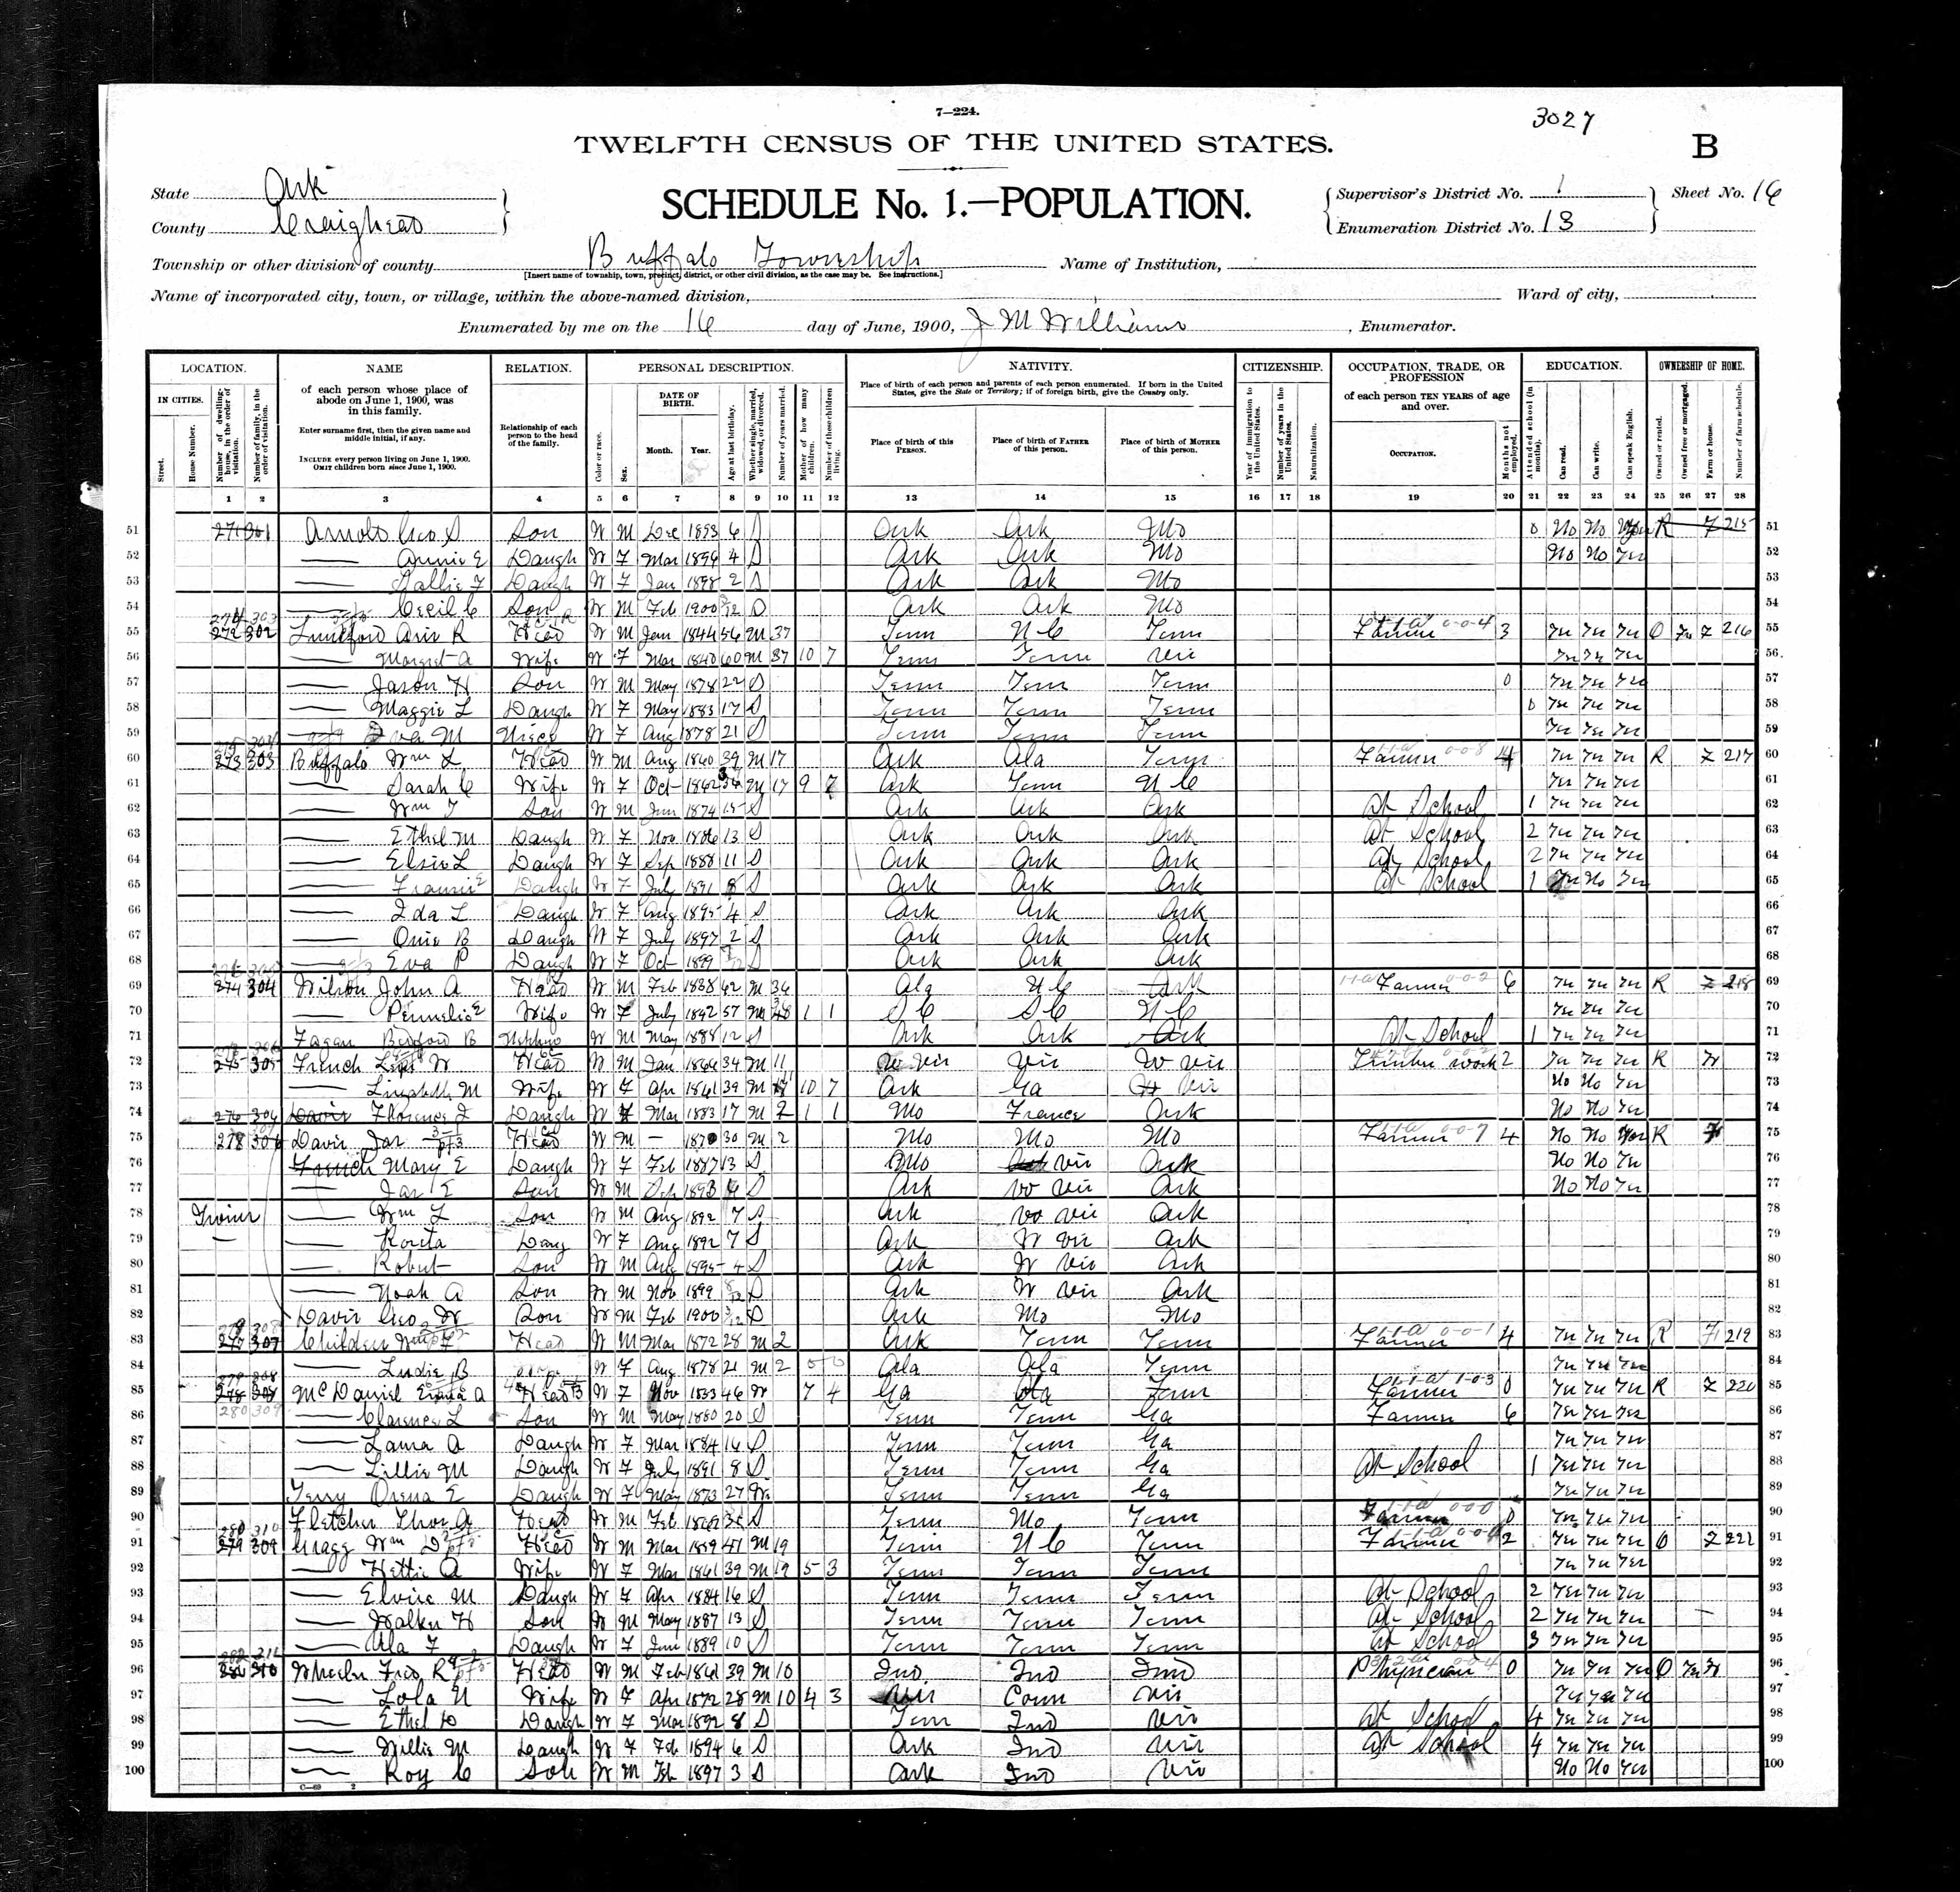 7—224.
3027
TWELFTH CENSUS OF THE UNITED STATES.
B
State Ark
SCHEDULE No. 1.—POPULATION.
Supervisor's District No. 1
Sheet No. 16
County Craighead
Enumeration District No. 13
Township or other division of county Buffalo Township
Name of Institution,
[Insert name of township, town, precinct, district, or other civil division, as the case may be. See instructions.]
Name of incorporated city, town, or village, within the above-named division,
Ward of city,
Enumerated by me on the 16 day of June, 1900, J M Williams, Enumerator.
LOCATION. NAME RELATION. PERSONAL DESCRIPTION. NATIVITY. CITIZENSHIP. OCCUPATION, TRADE, OR PROFESSION EDUCATION. OWNERSHIP OF HOME.
IN CITIES. Street. House Number. Number of dwelling-house, in the order of visitation. Number of family, in the order of visitation.
of each person whose place of abode on June 1, 1900, was in this family.
Enter surname first, then the given name and middle initial, if any.
INCLUDE every person living on June 1, 1900. OMIT children born since June 1, 1900.
Relationship of each person to the head of the family.
Color or race. Sex. DATE OF BIRTH. Month. Year. Age at last birthday. Whether single, married, widowed, or divorced. Number of years married. Mother of how many children. Number of these children living.
Place of birth of each person and parents of each person enumerated. If born in the United States, give the State or Territory; if of foreign birth, give the Country only.
Place of birth of this PERSON. Place of birth of FATHER of this person. Place of birth of MOTHER of this person.
Year of immigration to the United States. Number of years in the United States. Naturalization.
of each person TEN YEARS of age and over.
OCCUPATION. Months not employed.
Attended school (in months). Can read. Can write. Can speak English.
Owned or rented. Owned free or mortgaged. Farm or house. Number of farm schedule.
1 2 3 4 5 6 7 8 9 10 11 12 13 14 15 16 17 18 19 20 21 22 23 24 25 26 27 28
51 271 301 Arnold Geo S Son W M Dec 1893 6 S Ark Ark Mo 0 No No R F 215 51
52 Annie E Daugh W F Mar 1896 4 S Ark Ark Mo No No Yes 52
53 Daugh W F Jan 1898 2 S Ark Ark Mo 53
54 Cecil C Son W M Feb 1900 S Ark Ark Mo 54
55 272 302 R Head W M Jan 1844 56 M 37 Tenn N C Tenn Farmer 3 Yes Yes Yes O F 216 55
56 Margret A Wife W F Mar 1840 60 M 37 10 7 Tenn Tenn Vir Yes Yes Yes 56
57 Jason H Son W M May 1878 22 S Tenn Tenn Tenn 0 Yes Yes Yes 57
58 Maggie L Daugh W F May 1883 17 S Tenn Tenn Tenn 0 Yes Yes Yes 58
59 Eva M Niece W F Aug 1878 21 S Tenn Tenn Tenn Yes Yes Yes 59
60 273 303 Buffalo Wm L Head W M Aug 1860 39 M 17 Ark Ala Tenn Farmer 4 Yes Yes Yes R F 217 60
61 Sarah C Wife W F Oct M 17 9 7 Ark Tenn N C Yes Yes Yes 61
62 Wm T Son W M Jun 15 S Ark Ark Ark At School 1 Yes Yes Yes 62
63 Ethel M Daugh W F Nov 1886 13 S Ark Ark Ark At School 2 Yes Yes Yes 63
64 Elsie L Daugh W F Sep 1888 11 S Ark Ark Ark At School 2 Yes Yes Yes 64
65 Daugh W F July 1891 8 S Ark Ark Ark At School 1 Yes No Yes 65
66 Ida L Daugh W F Aug 1895 4 S Ark Ark Ark 66
67 B Daugh W F July 1897 2 S Ark Ark Ark 67
68 Eva P Daugh W F Oct 1899 S Ark Ark Ark 68
69 274 304 Wilson John A Head W M Feb 1838 62 M 36 Ala N C Farmer 6 Yes Yes Yes R F 218 69
70 E Wife W F July 1842 57 M 1 1 S C S C N C Yes Yes Yes 70
71 Fagan B M May 1888 12 S Ark Ark Ark At School 1 Yes Yes Yes 71
72 275 305 French W Head W M Jan 1866 34 M 11 W Vir Vir W Vir Timber work 2 Yes Yes Yes R H 72
73 M Wife W F Apr 1861 39 M 10 7 Ark Ga Vir No No Yes 73
74 276 306 Davis Florence J Daugh W F Mar 1883 17 M 2 1 1 Mo France Ark No No Yes 74
75 Davis Jas Head W M — 1870 30 M 2 Mo Mo Mo Farmer 4 No No Yes R 75
76 French Mary E Daugh W F Feb 1887 13 S Mo Vir Ark No No Yes 76
77 Jas E Son W M Sep 1893 6 S Ark W Vir Ark No No Yes 77
78 Twins Wm L Son W M Aug 1892 7 S Ark W Vir Ark 78
79 — Rosetta Daug W F Aug 1892 7 S Ark W Vir Ark 79
80 Robert Son W M Aug 1895 4 S Ark W Vir Ark 80
81 Noah A Son W M Nov 1899 S Ark W Vir Ark 81
82 Davis Geo W Son W M Feb 1900 3/12 S Ark Mo Mo 82
83 277 307 Childers Wm F Head W M Mar 1872 28 M 2 Ark Tenn Tenn Farmer 4 Yes Yes Yes R F 219 83
84 Ludie B W F Aug 1878 21 M 2 0 0 Ala Ala Tenn Yes Yes Yes 84
85 278 308 McDaniel A Head W F Nov 1853 46 W 7 4 Ga Tenn Farmer 0 Yes Yes Yes R F 220 85
86 280 309 Clarence L Son W M May 1880 20 S Tenn Tenn Ga Farmer 6 Yes Yes Yes 86
87 Laura A Daugh W F Mar 1884 16 S Tenn Tenn Ga Yes Yes Yes 87
88 Lillie M Daugh W F July 1891 8 S Tenn Tenn Ga At School 1 Yes Yes Yes 88
89 Terry Orena E Daugh W F May 1873 27 Tenn Tenn Ga Yes Yes Yes 89
90 Fletcher Thos A Head W M Feb S Tenn Mo Tenn Farmer 0 Yes Yes Yes 90
91 279 309 Gragg Wm D Head W M Mar 1859 41 M 19 Tenn N C Tenn Farmer 2 Yes Yes Yes O F 221 91
92 Hettie A Wife W F Mar 1861 39 M 19 5 3 Tenn Tenn Tenn Yes Yes Yes 92
93 M Daugh W F Apr 1884 16 S Tenn Tenn Tenn At School 2 Yes Yes Yes 93
94 Walker H Son W M May 1887 13 S Tenn Tenn Tenn At School 2 Yes Yes Yes 94
95 Ula F Daugh W F Jun 1889 10 S Tenn Tenn Tenn At School 3 Yes Yes Yes 95
96 310 Wheeler Fred R Head W M Feb 1861 39 M 10 Ind Ind Ind Physician 0 Yes Yes Yes O H 96
97 Lola N Wife W F Apr 1872 28 M 10 4 3 Vir Conn Vir Yes Yes Yes 97
98 Ethel D Daugh W F Mar 1892 8 S Tenn Ind Vir At School 4 Yes Yes Yes 98
99 Willie M Daugh W F Feb 1894 6 S Ark Ind Vir At School 4 Yes Yes Yes 99
100 Roy C Son W M Feb 1897 3 S Ark Ind Vir No No Yes 100
C—69 2